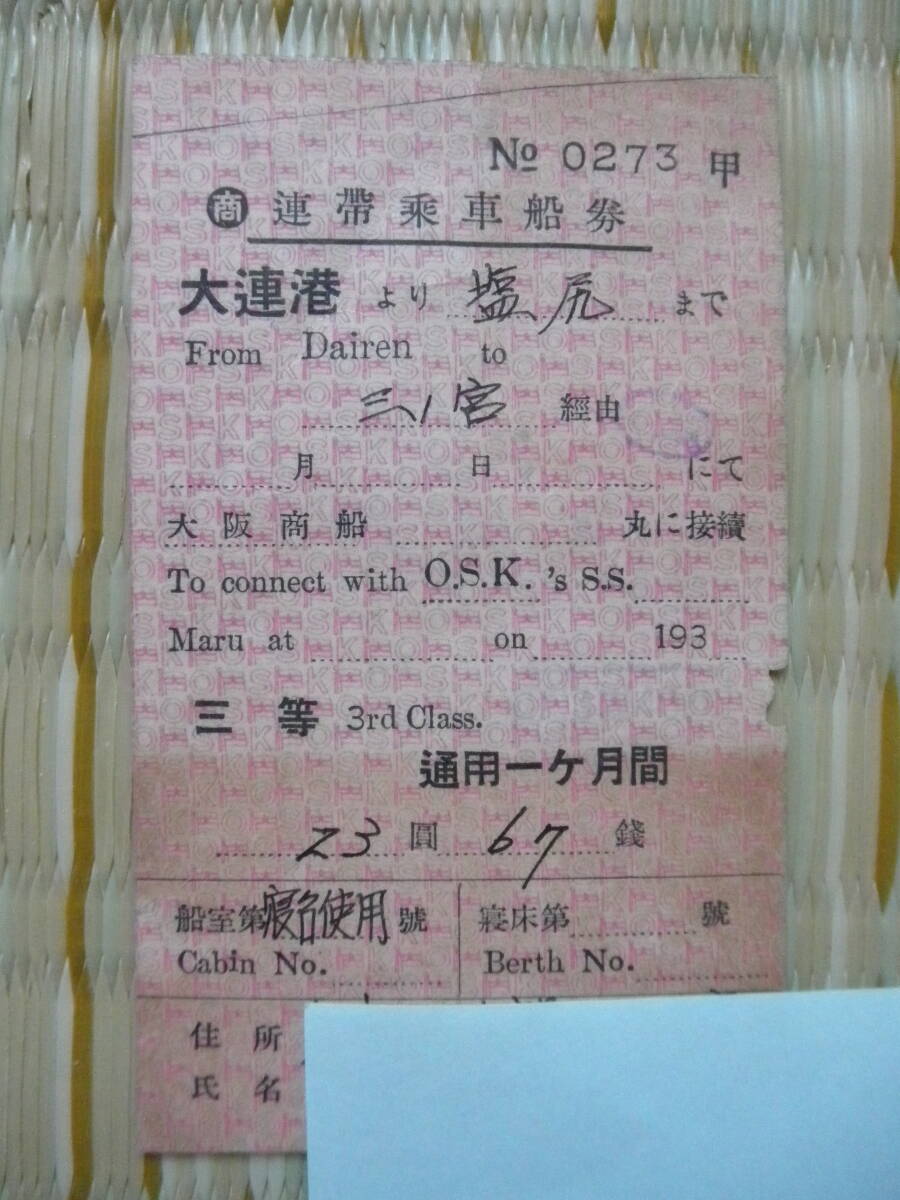 No 0273 甲
商 連帶乘車船券
大連港 より 塩尻 まで
From Dairen to
三ノ宮 經由
月 日 にて
大阪商船 丸に接續
To connect with O.S.K.'s S.S.
Maru at on 193
三等 3rd Class.
通用一ケ月間
23圓67錢
船室第寝台使用號 寢床第 號
Cabin No. Berth No.
住所
氏名